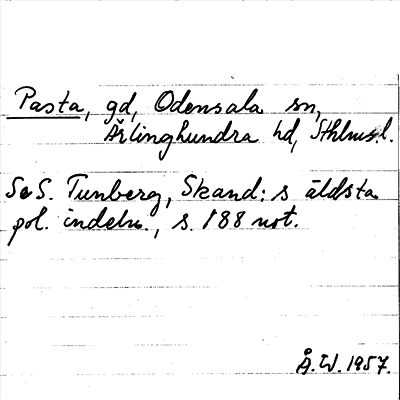 Pasta, gd, Odensala sn,
Ärlinghundra hd, Sthlms l.
Se S. Tunberg, Skand:s äldsta
pol. indeln., s. 188 not.
Å.W. 1957.